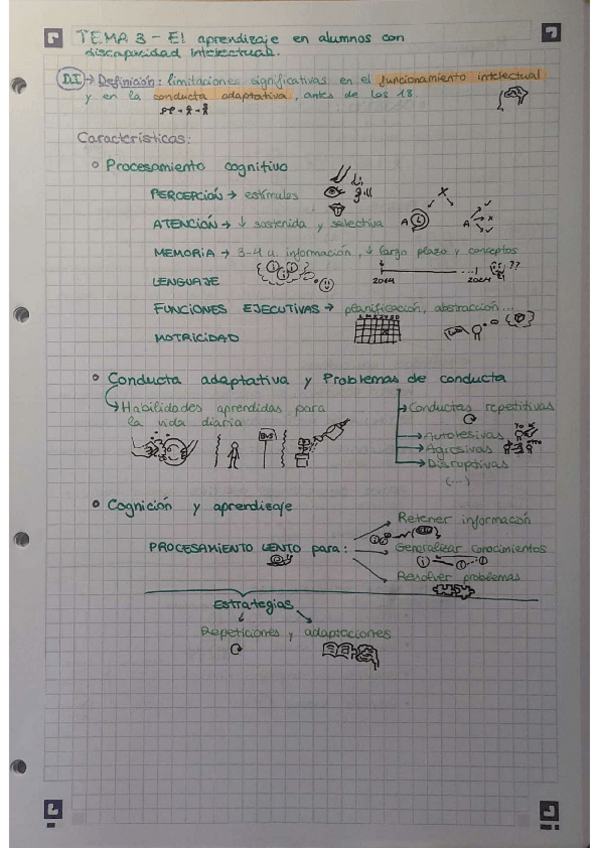 TEMA 3 - El aprendizaje en alumnos con
discapacidad intelectual.
D.I → Definición: limitaciones significativas en el funcionamiento intelectual
y en la conducta adaptativa, antes de los 18.
Características:
Procesamiento cognitivo
PERCEPCIÓN → estímulos
ATENCIÓN → ↓ sostenida y selectiva
MEMORIA → 3-4 u. información, ↓ largo plazo y conceptos
LENGUAJE
2014 2024 ??
FUNCIONES EJECUTIVAS → planificación, abstracción...
MOTRICIDAD
Conducta adaptativa y Problemas de conducta
→ Habilidades aprendidas para
la vida diaria
BUS
→ Conductas repetitivas
→ Autolesivas
→ Agresivas
→ Disruptivas
(...)
Cognición y aprendizaje
PROCESAMIENTO LENTO para:
Retener información
Generalizar conocimientos
Resolver problemas
Estrategias
Repeticiones y adaptaciones